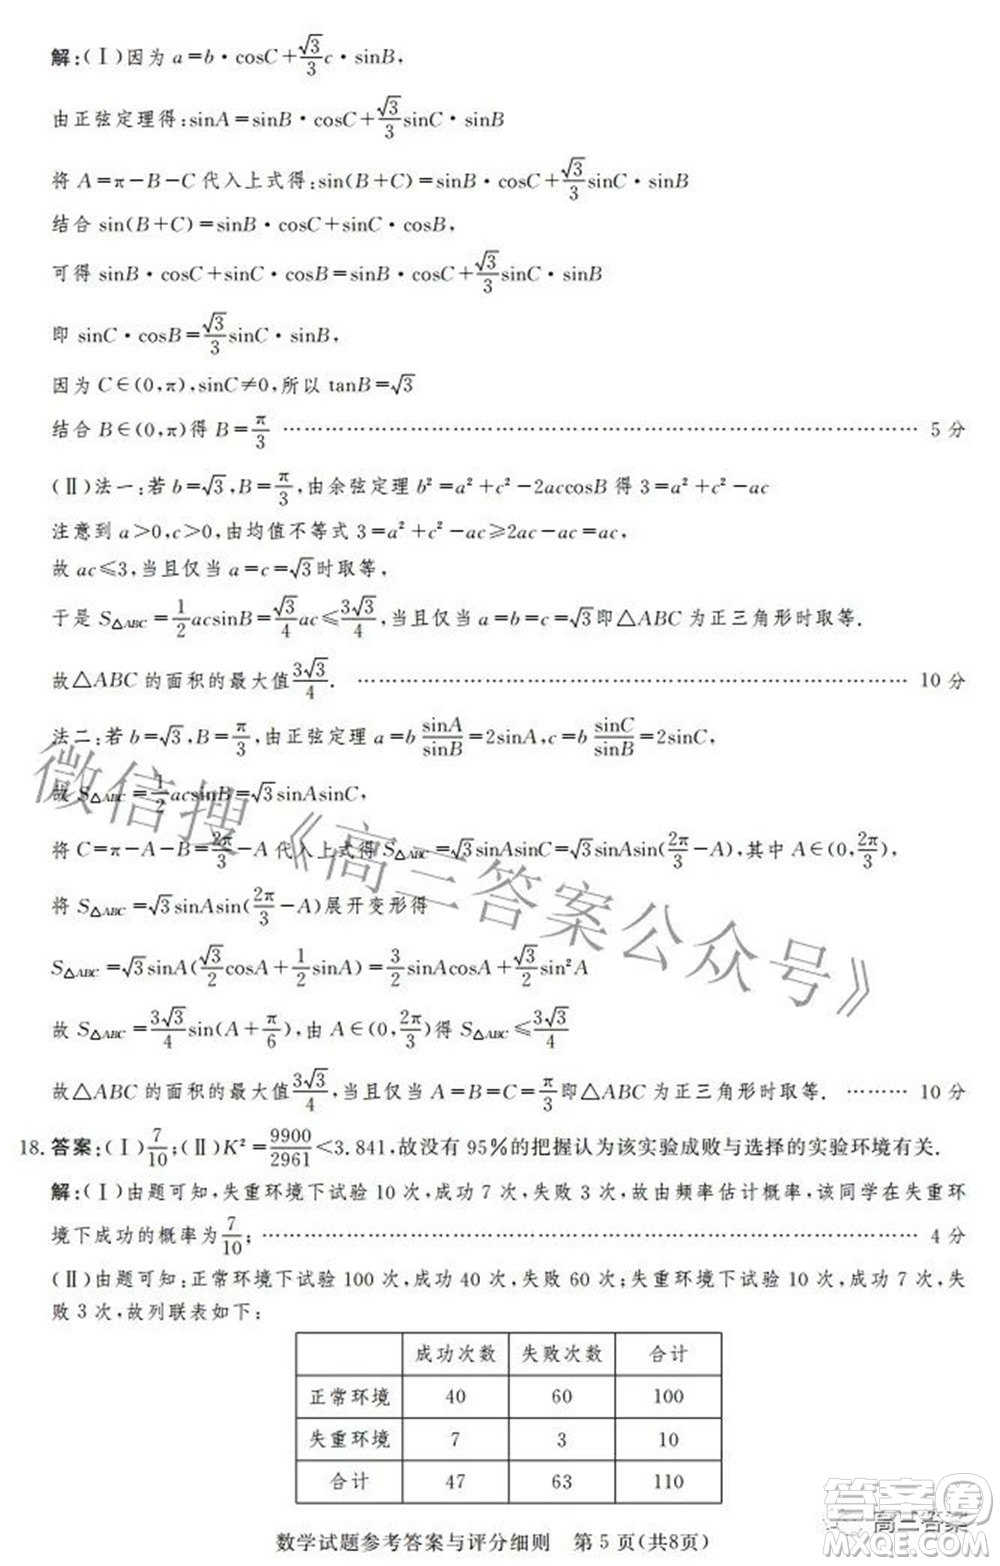 解:(Ⅰ)因为 a=b·cosC+√3/3c·sinB,
由正弦定理得:sinA=sinB·cosC+√3/3sinC·sinB
将 A=π-B-C 代入上式得:sin(B+C)=sinB·cosC+√3/3sinC·sinB
结合 sin(B+C)=sinB·cosC+sinC·cosB,
可得 sinB·cosC+sinC·cosB=sinB·cosC+√3/3sinC·sinB
即 sinC·cosB=√3/3sinC·sinB,
因为 C∈(0,π),sinC≠0,所以 tanB=√3
结合 B∈(0,π)得 B=π/3 …… 5 分
(Ⅱ)法一:若 b=√3,B=π/3,由余弦定理 b²=a²+c²-2accosB 得 3=a²+c²-ac
注意到 a>0,c>0,由均值不等式 3=a²+c²-ac≥2ac-ac=ac,
故 ac≤3,当且仅当 a=c=√3时取等,
于是 S△ABC=1/2acsinB=√3/4ac≤3√3/4,当且仅当 a=b=c=√3即△ABC 为正三角形时取等.
故△ABC 的面积的最大值3√3/4. …… 10 分
法二:若 b=√3,B=π/3,由正弦定理 a=b sinA/sinB=2sinA,c=b sinC/sinB=2sinC,
故 S△ABC=1/2acsinB=√3sinAsinC,
将 C=π-A-B=2π/3-A 代入上式得 S△ABC=√3sinAsinC=√3sinAsin(2π/3-A),其中 A∈(0,2π/3),
将 S△ABC=√3sinAsin(2π/3-A)展开变形得
S△ABC=√3sinA(√3/2cosA+1/2sinA)=3/2sinAcosA+√3/2sin²A
故 S△ABC=3√3/4sin(A+π/6),由 A∈(0,2π/3)得 S△ABC≤3√3/4
故△ABC 的面积的最大值3√3/4,当且仅当 A=B=C=π/3即△ABC 为正三角形时取等. …… 10 分
18.答案:(Ⅰ)7/10;(Ⅱ)K²=9900/2961<3.841,故没有 95%的把握认为该实验成败与选择的实验环境有关.
解:(Ⅰ)由题可知,失重环境下试验 10 次,成功 7 次,失败 3 次,故由频率估计概率,该同学在失重环
境下成功的概率为7/10; …… 4 分
(Ⅱ)由题可知:正常环境下试验 100 次,成功 40 次,失败 60 次;失重环境下试验 10 次,成功 7 次,失
败 3 次,故列联表如下:
成功次数 失败次数 合计
正常环境 40 60 100
失重环境 7 3 10
合计 47 63 110
数学试题参考答案与评分细则 第 5 页(共8页)
微信搜《高三答案公众号》
答案圈
高三答案